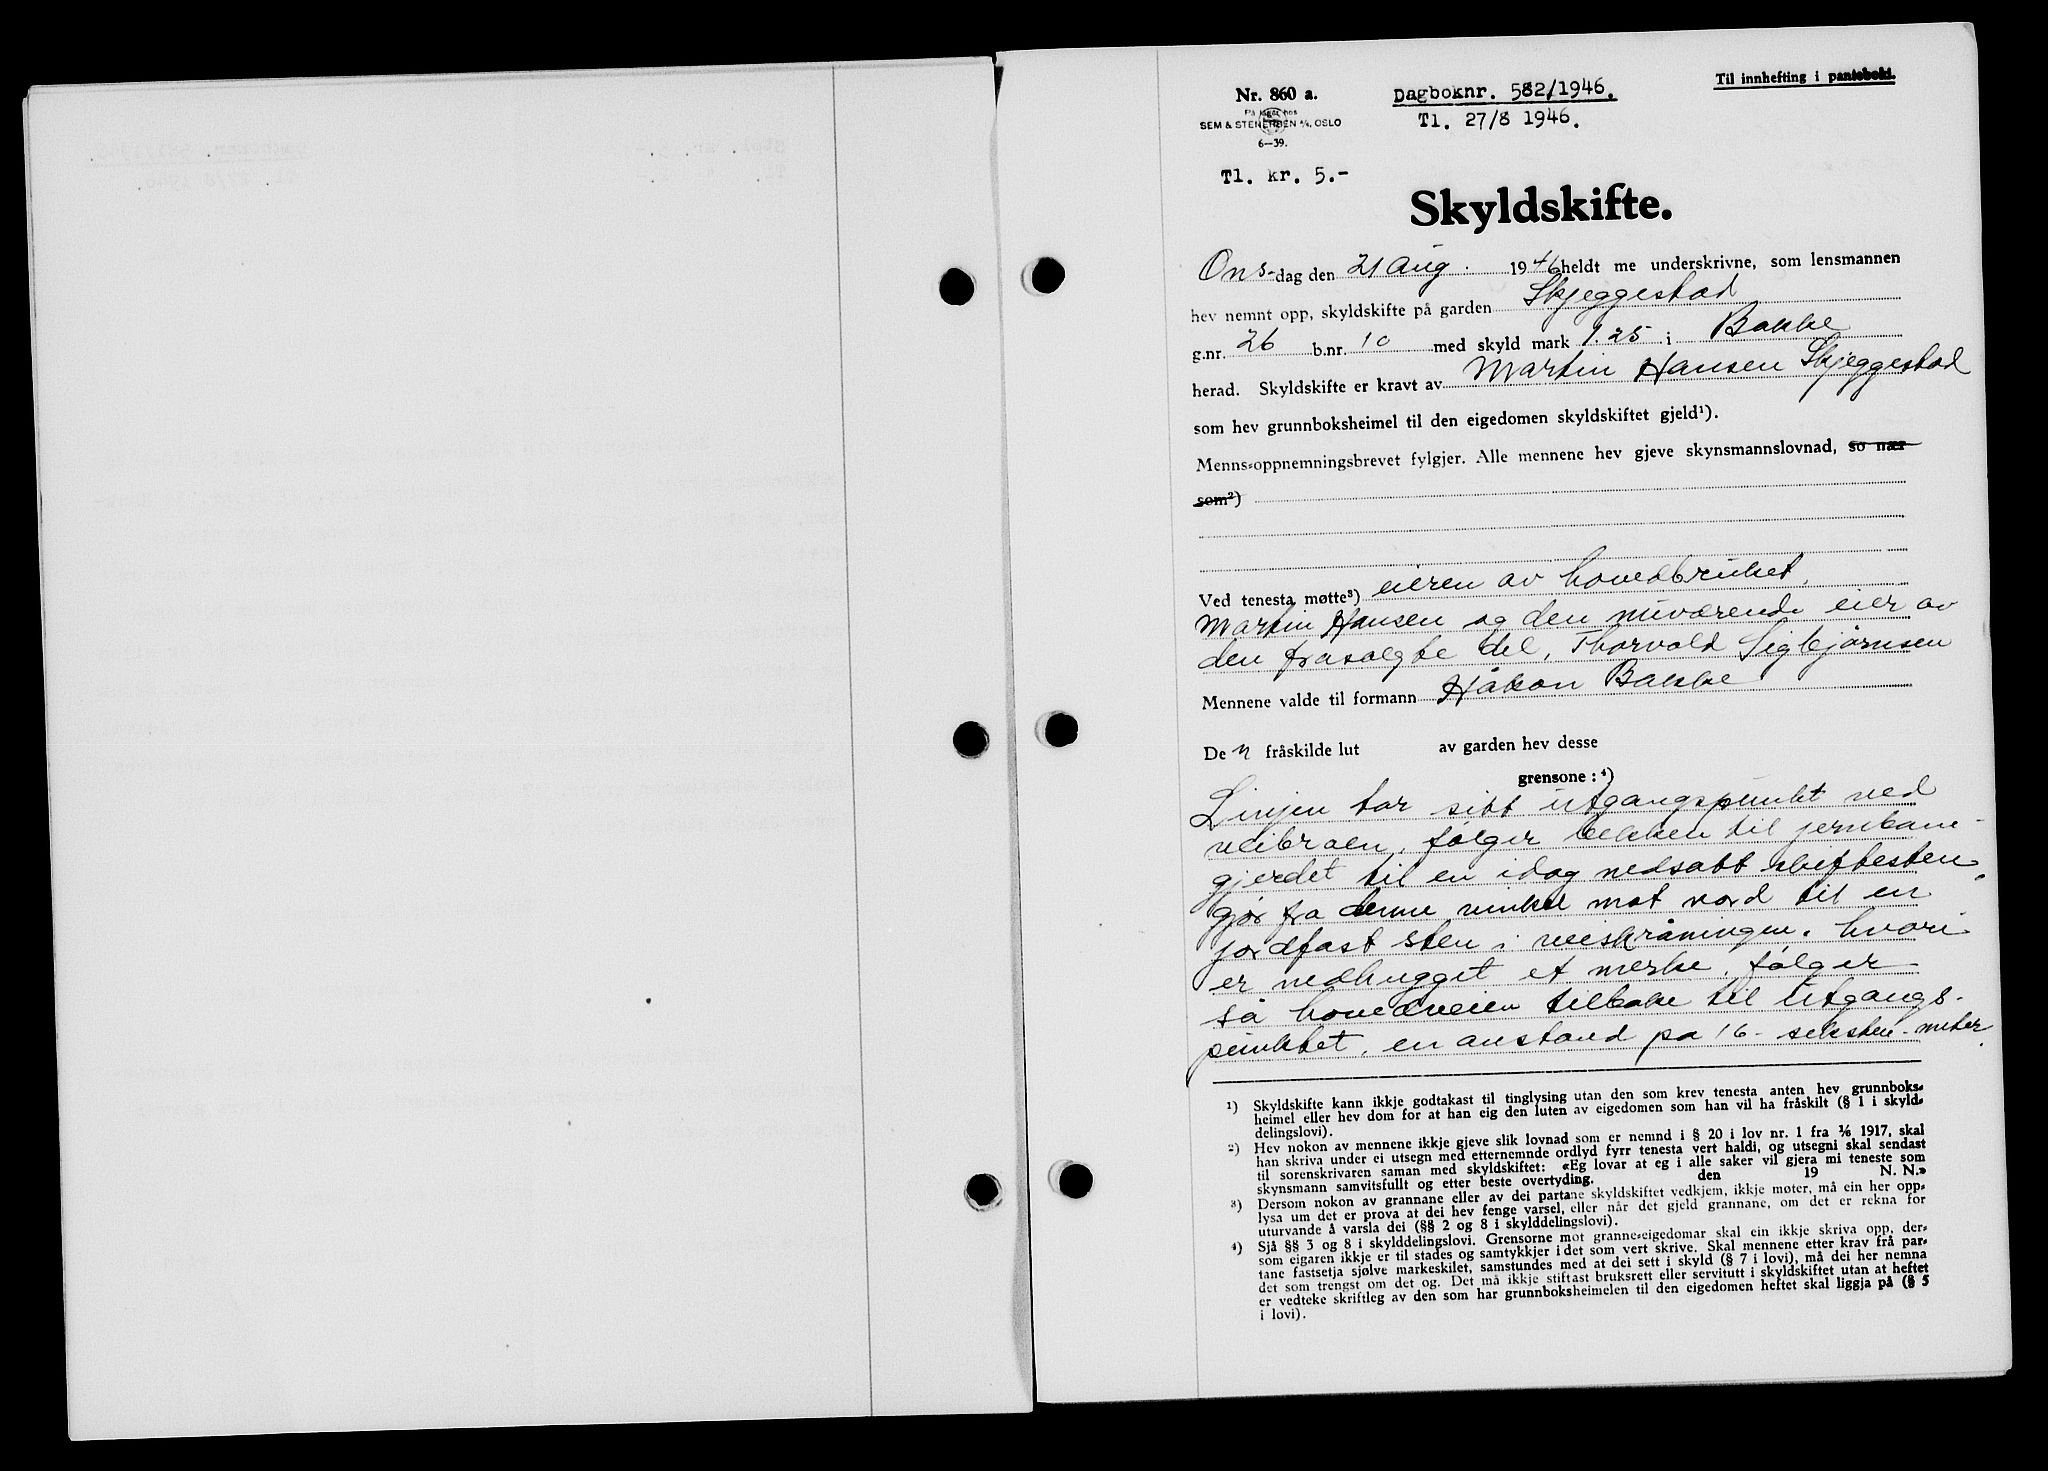 Til innhefting i pantebok.
Nr. 860 a.
Dagboknr. 582/1946.
På lager hos
SEM & STENERSEN A/S, OSLO
Tl. 27/8 1946.
6—39.
Tl. kr. 5.-
Skyldskifte.
Ons-dag den 21 Aug. 1946 heldt me underskrivne, som lensmannen
hev nemnt opp, skyldskifte på garden Skjeggestad
g.nr. 26 b.nr. 10 med skyld mark 1.25 i Bakke
herad. Skyldskifte er kravt av Martin Hansen Skjeggestad
som hev grunnboksheimel til den eigedomen skyldskiftet gjeld¹).
Menns-oppnemningsbrevet fylgjer. Alle mennene hev gjeve skynsmannslovnad, so nær
som²)
Ved tenesta møtte³) eieren av hovedbruket,
Martin Hansen og den nuværende eier av
den frasolgte del, Thorvald Sigbjørnsen
Mennene valde til formann Håkon Bakke
De n fråskilde lut av garden hev desse
grensone:⁴)
Linjen tar sitt utgangspunkt ved
veibroen, følger bekken til jernbane-
gjerdet til en idag nedsatt skiftesten,
gjør fra denne vinkel mot nord til en
jordfast sten i veiskråningen, hvori
er nedhugget et merke, følger
så hovedveien tilbake til utgangs-
punktet, en avstand på 16 - seksten - meter.
¹) Skyldskifte kann ikkje godtakast til tinglysing utan den som krev tenesta anten hev grunnboks-
heimel eller hev dom for at han eig den luten av eigedomen som han vil ha fråskilt (§ 1 i skyld-
delingslovi).
²) Hev nokon av mennene ikkje gjeve slik lovnad som er nemnd i § 20 i lov nr. 1 fra 1/6 1917, skal
han skriva under ei utsegn med etternemnde ordlyd fyrr tenesta vert haldi, og utsegni skal sendast
til sorenskrivaren saman med skyldskiftet: «Eg lovar at eg i alle saker vil gjera mi teneste som
skynsmann samvitsfullt og etter beste overtyding. den 19 N. N.»
³) Dersom nokon av grannane eller av dei partane skyldskiftet vedkjem, ikkje møter, må ein her opp-
lysa um det er prova at dei hev fenge varsel, eller når det gjeld grannane, om det er rekna for
uturvande å varsla dei (§§ 2 og 8 i skylddelingslovi).
⁴) Sjå §§ 3 og 8 i skylddelingslovi. Grensorne mot granne-eigedomar skal ein ikkje skriva opp, der-
som eigaren ikkje er til stades og samtykkjer i det som vert skrive. Skal mennene etter krav frå par-
tane fastsetja sjølve markeskilet, samstundes med at dei sett i skyld (§ 7 i lovi), må dei her nemna
det som trengst om det og. Det må ikkje stiftast bruksrett eller servitutt i skyldskiftet utan at heftet
er vedteke skriftleg av den som har grunnboksheimelen til den eigedomen heftet skal liggja på (§ 5
i lovi).